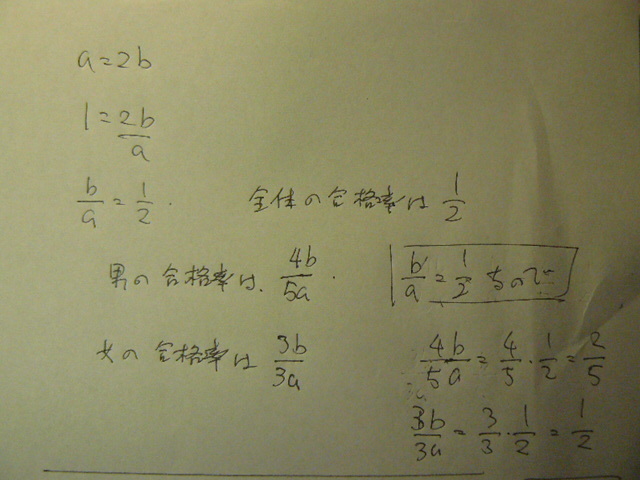 a=2b
1=2b/a
b/a=1/2. 全体の合格率は 1/2
男の合格率は. 4b/5a. b/a=1/2 なので
女の合格率は 3b/3a 4b/5a=4/5・1/2=2/5
3b/3a=3/3・1/2=1/2